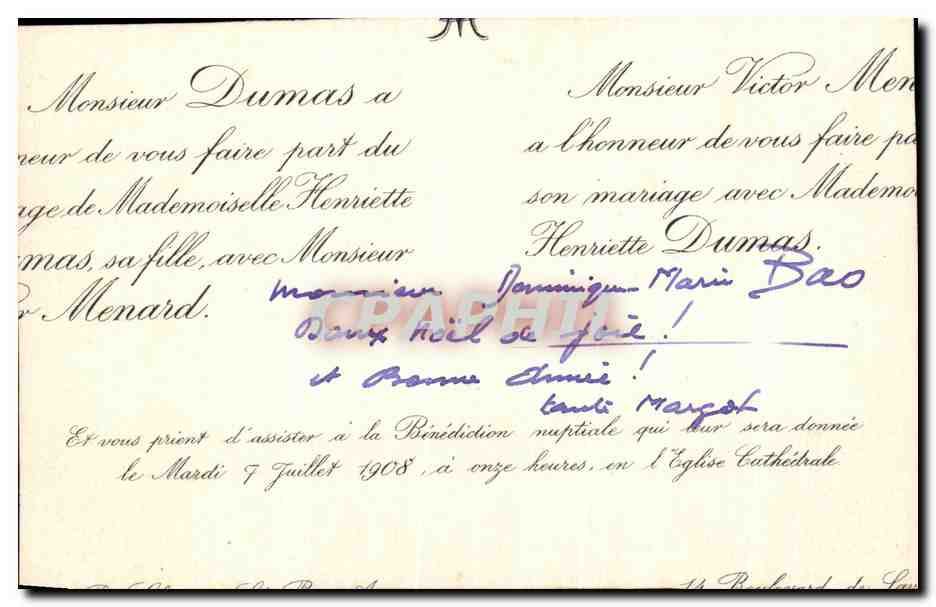 Monsieur Dumas a
neur de vous faire part du
age de Mademoiselle Henriette
mas, sa fille, avec Monsieur
r Menard.
Monsieur Victor Men
a l'honneur de vous faire pa
son mariage avec Mademoi
Henriette Dumas.
Monsieur Dominique Marie Bao
Doux Noël de joie!
et Bonne Année!
tante Margot
Et vous prient d'assister à la Bénédiction nuptiale qui leur sera donnée
le Mardi 7 Juillet 1908, à onze heures, en l'Eglise Cathédrale
14 Boulevard de
CPAPHIL